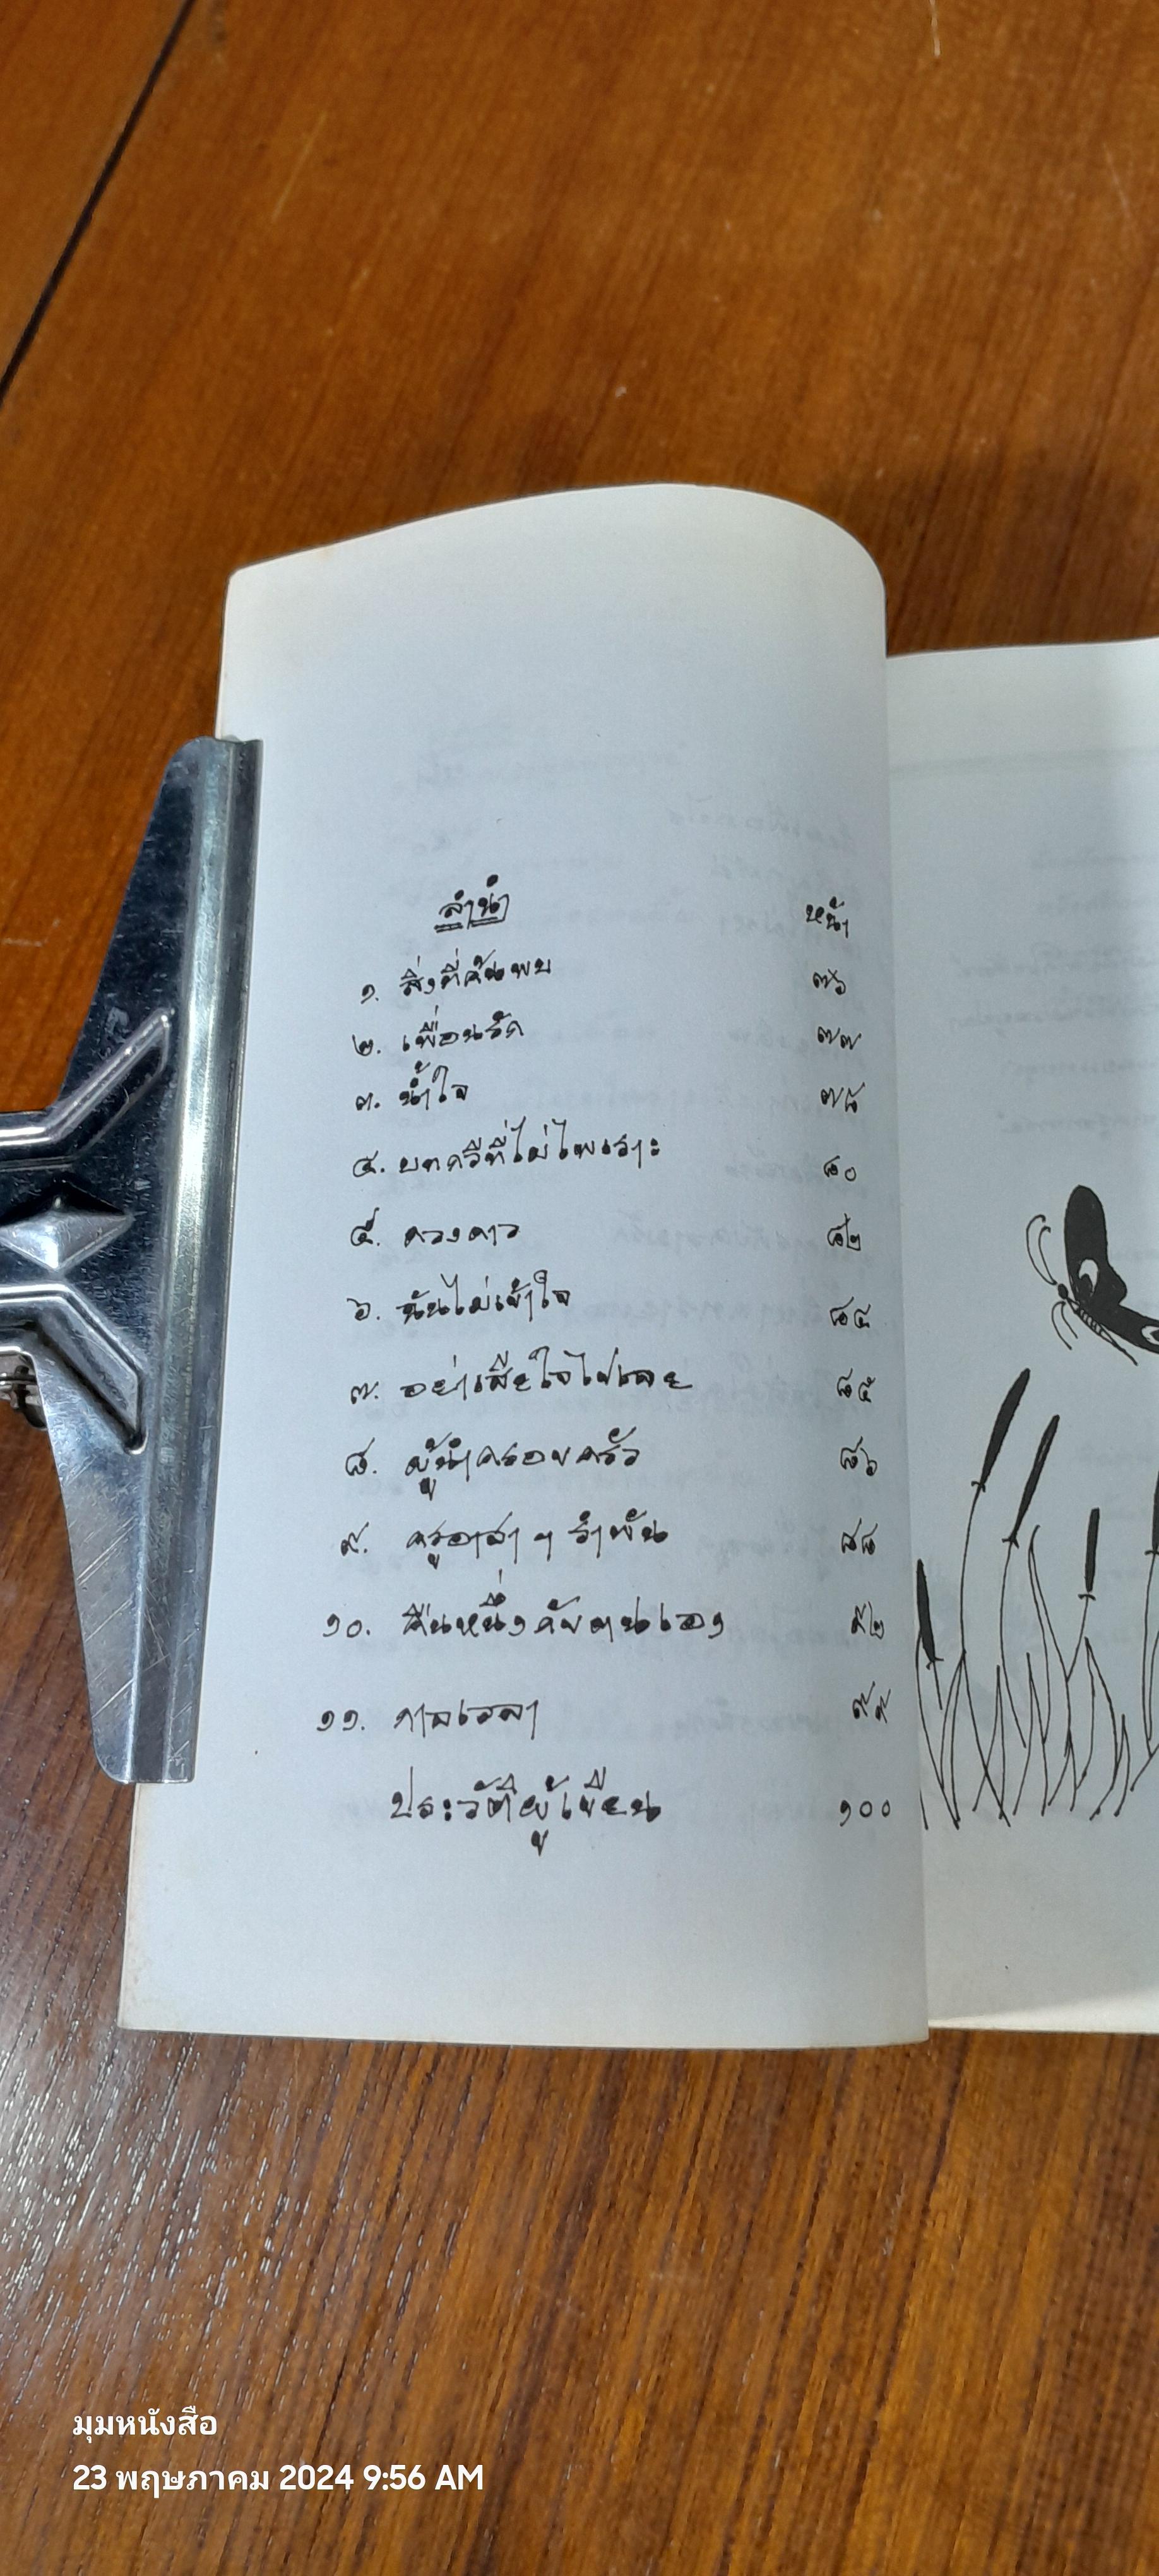 ลำนำ หน้า
๑. สิ่งที่ค้นพบ ๗๖
๒. เพื่อนรัก ๗๗
๓. น้ำใจ ๗๘
๔. บทกวีที่ไม่ไพเราะ ๘๐
๕. ดวงดาว ๘๒
๖. ฉันไม่เข้าใจ ๘๔
๗. อย่าเสียใจไปเลย ๘๕
๘. ผู้นำครอบครัว ๘๖
๙. ครูอาสา ๆ รำพัน ๘๘
๑๐. คืนหนึ่งกับตนเอง ๙๒
๑๑. กาลเวลา ๙๙
ประวัติผู้เขียน ๑๐๐
มุมหนังสือ
23 พฤษภาคม 2024 9:56 AM